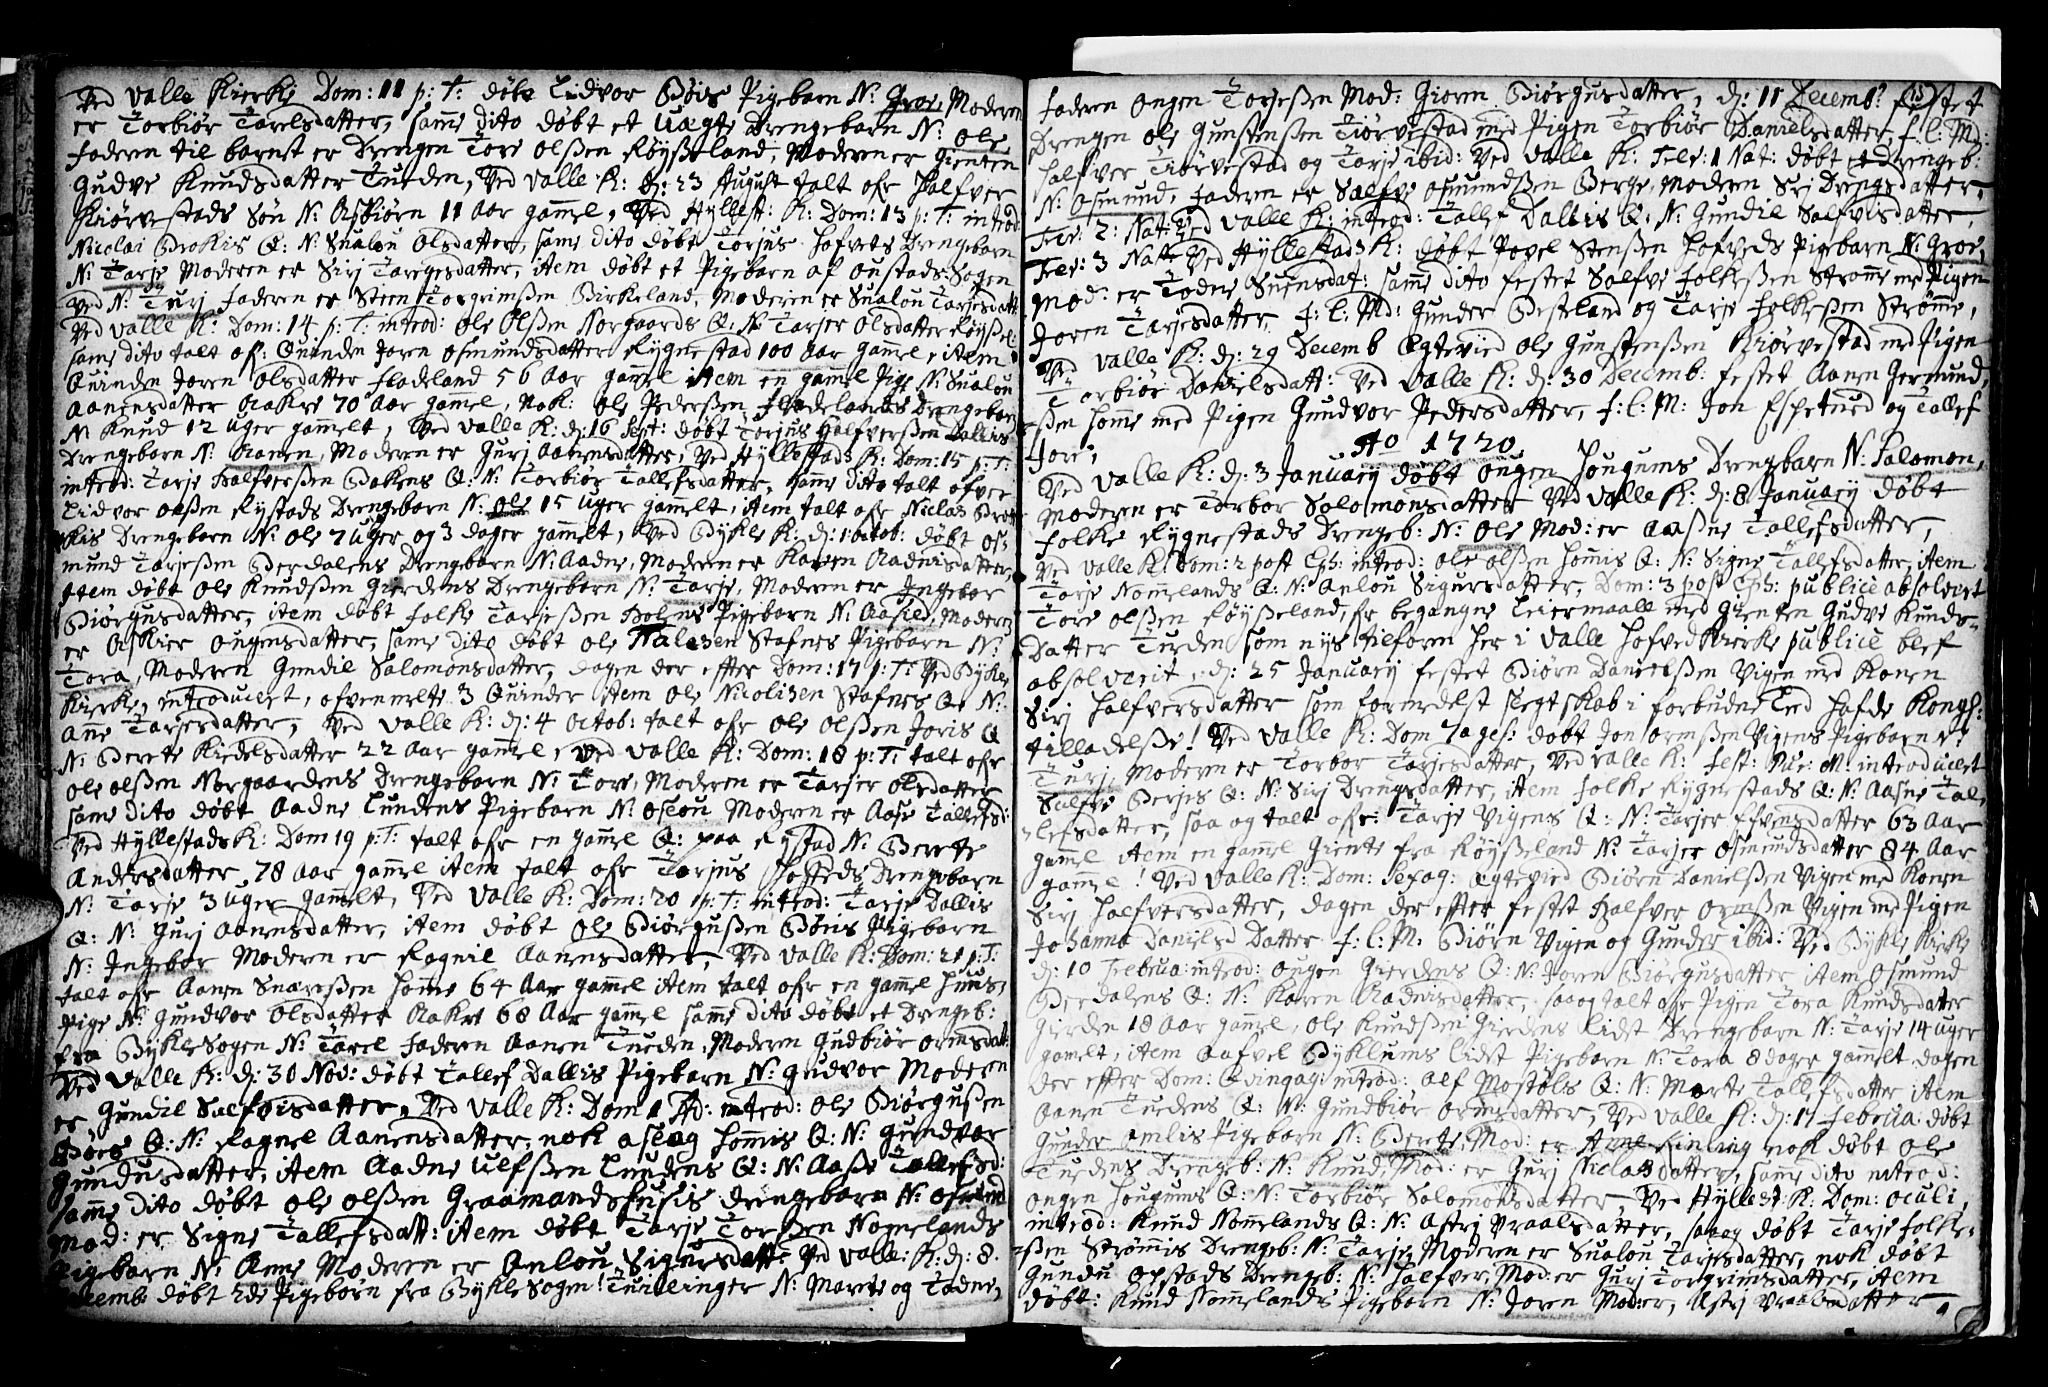 Ved Valle Kierke Dom: 11 p: T: døbt Lidvor Bøis Pigebarn N: Groe, Moderen
er Torbiør Tarelsdatter, samme dito døbt et uægte Drengebarn N: Ole
Faderen til barnet er Drengen Tore Olsßen Røyßeland, Moderen er Gienten
Gudve Knudsdatter Tueden, Ved Valle K: d: 23 August talt ofr Halfver
Kiørvestads Søn N: Asbiørn 11 Aar gamel, Ved Hyllest: K: Dom: 13 p: T: introd:
Nicolai Brokis Q: N: Sualou Olsdatter, same dito døbt Torjus Hofvets Drengebarn
N: Tarje Moderen er Sirj Taregesdatter, item døbt et Pigebarn af Oustads Sogen
Ved N: Turj Faderen er Steen Torgrimsßen Birkeland, Moderen er Sualou Tarjesdatt:
Ved Valle K: Dom: 14 p: T: introd: Ole Olsßen Norgaards Q: N: Tarjer Olsdatter Røyßel:
same dito talt of: Quinden Joren Osmundsdatter Rygnestad 100 Aar gamel, item
Quinden Joren Olsdatter Fladeland 56 Aar gamel item en gamel Pige N: Sualou
Aanensdatter Rakre 70 Aar gamel, Nok: Ole Pedersßen Fladelands Drengebarn
N: Knud 12 Uger gamelt, Ved Valle K: d: 16 Sept: døbt Torjus Halfversßen Dallis
Drengebarn N: Aanen, Moderen er Gurj Aanensdatter, Ved Hyllestads K: Dom: 15 p: T:
introd: Tarje Halfversßen Bakens Q: N: Torbiør Tallefsdatter, same dito talt ofver
Lidvor Olsßen Rystads Drengebarn N: Ole 15 Uger gamelt, item talt ofr Niclas Bro
kis Drengebarn N: Ole 7 Uger og 3 dager gamelt, Ved Bykle K: d: 1 Octob: døbt Os-
mund Tarjesßen Berdalens Drengebarn N: Aadne, Moderen er Karen Aadnisdatter
item døbt Ole Knudsßen Gierdens Drengebarn N: Tarje, Moderen er Ingebor
Biørgusdatter, item døbt Folke Tarjesßen Holens Pigebarn N: Aasile, Moderen
er Asbier Ougensdatter, same dito døbt Ole Stafnes Pigebarn N:
Tora, Moderen Gundil Salomonsdatter, dagen der effter Dom: 17 p: T: Ved Bykle
Kierke, introducert, ofvenmelte 3 Quinder item Ole Nicolisen Stafnes Q: N:
Ane Tarjesdatter, Ved Valle K: d: 4 Octob: talt ofr Ole Olsßen Joris Q
N: Berte Kiedelsdatter 22 Aar gamel, Ved Valle K: Dom: 18 p: T: talt ofr
Ole Olsßen Norgaardens Drengebarn N: Tore, Moderen er Tarjer Olsdatter
same dito døbt Aadne Lundens Pigebarn N: Oslou Moderen er Aase Tallefsd:
Ved Hyllestads K: Dom 19 p: T: talt ofr en gamel Q: paa Rystad N: Berete
Andersdatter 78 Aar gamel item talt ofr Torjus Hoffeds Drengebarn
N: Tarje 3 Uger gamelt, Ved Valle K: Dom: 20 p: T: introd: Tarje Dallis
Q: N: Gurj Aanensdatter, item døbt Ole Biørgußen Børis Pigebarn
N: Ingebor Moderen er Ragnil Aanensdatter, Ved Valle K: Dom: 21 p: T:
talt ofr Aanen Snaresßen Home 64 Aar gamel item talt ofr en gamel Huus-
pige N: Gundvor Olsdatter Rakre 68 Aar gamel same dito døbt et Drengeb:
fra Bykle Sogen N: Tarel Faderen Aanen Tueden, Moderen Gudbiør Ormsdat:
Ved Valle K: d: 30 Nov: døbt Tallef Dallis Pigebarn N: Gudvor Moderen
er Gundil Salfvisdatter, Ved Valle K: Dom 1 Ad: introd: Ole Biørgußen
Bøes Q: N: Ragnel Aanensdatter, nok Aslag Homis Q: N: Gundvor
Gundusdatter, item Aadne Ulfsßen Lundens Q: N: Aaße Tallefsd:
same dito døbt Ole Olsßen Graamandshusis Drengebarn N: Osmund
Mod: er Signe Tallefsdatt: item døbt Tarje Torsßen Nomelands
Pigebarn N: Ane Moderen er Anlou Sigursdatt: Ved Valle K: d: 8.
Decemb: døbt 2de Pigebørn fra Bykle Sogen! Tuillinger N: Marete og Todne,
Faderen Ongen Torjesßen Mod: Gioren Biørgusdatter, d: 11 Decemb: festet
Drengen Ole Gunstensßen Kiørvestad med Pigen Torbiør Danielsdatter, f: l: Md:
Halfver Kiørvestad og Tarje ibid: Ved Valle K: Fer: 1 Nat: døbt et Drengeb:
N: Osmund, Faderen er Salfve Osmundsßen Berge, Moderen Sirj Drengsdatter.
Fer: 2: Nat: Ved Valle K: introd: Tallef Dallis Q: N: Gundil Salfvisdatter,
Fer: 3 Nat: Ved Hyllestads K: døbt Povel Stensßen Hofveds Pigebarn N: Groe,
Mod: er Todne Suensdat: same dito festet Salfve Folkesßen Strøme med Pigen
Joren Tarjesdatter, f: l: Md: Gunder Besteland og Tarje Folkesßen Strøme,
Ved Valle K: d: 29 Decemb Ægtevied Ole Gunstensßen Kiørvestad med Pigen
Torbiør Danielsdatt: Ved Valle K: d: 30 Decemb: festet Aanen Germund-
sßen Home med Pigen Gundvor Pedersdatter, f: l: M: Jon Espetued og Tallef
Jore,
Ao 1720
Ved Valle K: d: 3 January døbt Ougen Hougums Drengbarn N: Salomon,
Moderen er Torbor Salomonsdatter Ved Valle K: d: 8 January døbt
Folke Rygnestads Drengeb: N: Ole Mod: er Aasne Tallefsdatter,
Ved Valle K: Dom: 2 post Eph: introd: Ole Olsßen Homis Q: N: Signe Tallefsdatter, item
Tarje Nomelands Q: N: Anlou Sigursdatter, Dom: 3 post Eph: publice absolvert
Tore Olsßen Røyßeland, for begangne Leiermaall med Gienten Gudve Knuds-
Datter Tueden som nys tilforn her i Valle Hofved Kierke publice blef
absolverit, d: 25 January festet Biørn Danielsßen Vigen med Konen
Sirj Halfversdatter som formedelst slegtskab i forbudne Led hafde Kongl:
tilladelße! Ved Valle K: Dom 7ages: døbt Jon Ormsßen Vigens Pigebarn N:
Turj, Moderen er Torbor Tarjesdatter, Ved Valle K: Fest: Pur: M: introducert
Salfve Berjes Q: N: Sirj Drengsdatter, item Folke Rygnestads Q: N: Aasne Tal-
lefsdatter, saa og talt ofr: Tarje Vigens Q: N: Tarjer Efvensdatter 63 Aar
gamel item en gamel Giente fra Røyßeland N: Tarjer Osmundsdatter 84 Aar
gamel! Ved Valle K: Dom: Sexag: Ægtevied Biørn Danielsßen Vigen med Konen
Sirj Halfversdatter, dagen der effter festet Halfver Ormsßen Vigen med Pigen
Johanna Daniels Datter f: l: M. Biørn Vigen og Gunder ibid: Ved Bykle Kirke
d: 10 Februa: introd: Ougen Gierdens Q: N: Joren Biørgusdatter item Osmund
Berdalens Q: N: Karen Aadnisdatter, saa og talt ofr Pigen Tora Knudsdatter
Gierden 18 Aar gamel, Ole Knudsßen Gierdens lidet Drengebarn N: Tarje 14 Uger
gamelt, item Aafvel Byklums lidet Pigebarn N: Tora 8 dager gamelt, dagen
der effter Dom: Qvinqag: introd: Alf Mostøls Q: N: Marte Tallefsdatter item
Aanen Tuedens Q: N: Gundbiør Ormsdatter, Ved Valle K: d: 17 Februa: døbt
Gunder Amlis Pigebarn N: Berete, Mod: er nok døbt Ole
Tuedens Drengeb: N: Knud, Mod: er Gurj Niclasdatter, same dito introd:
Ongen Hougums Q: N: Torbiør Salomonsdatter, Ved Hyllest: K: Dom: Oculi,
introd: Knud Nomelands Q: N: Astrj Vraalsdatter, saaog døbt Tarje Folke-
sßen Strømis Drengeb: N: Tarje, Moderen er Sualou Tarjesdatter, nok døbt
Gundu Opstads Drengeb: N: Halfver, Mod: er Gurj Torgrimsdatter, item
døbt: Knud Nomelands Pigebarn N: Joren Mod: er, Astrj Vraalsdatter